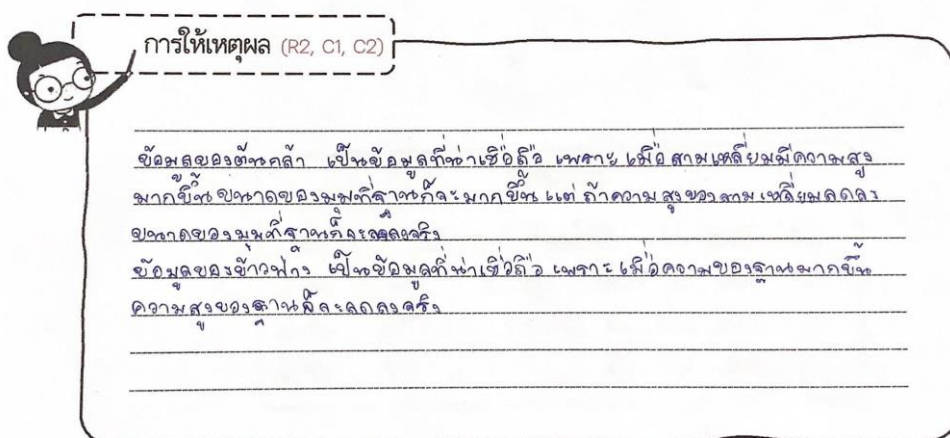 การให้เหตุผล (R2, C1, C2)
ข้อมูลของต้นกล้า เป็นข้อมูลที่น่าเชื่อถือ เพราะ เมื่อสามเหลี่ยมมีความสูง
มากขึ้น ขนาดของมุมที่ฐานก็จะมากขึ้น แต่ ถ้าความสูงของสามเหลี่ยมลดลง
ขนาดของมุมที่ฐานก็จะลดลงจริง
ข้อมูลของข้าวฟ่าง เป็นข้อมูลที่น่าเชื่อถือ เพราะ เมื่อความของฐานมากขึ้น
ความสูงของฐานก็จะลดลงจริง